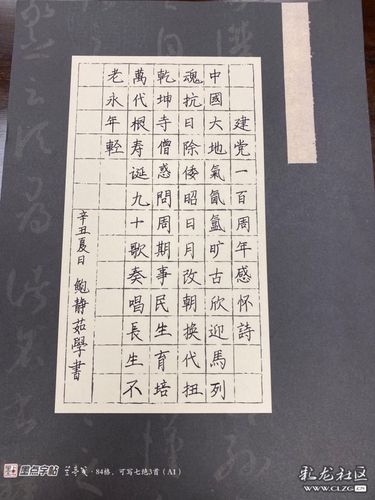 建党一百周年感怀詩
中國大地氣氤氲旷古欣迎馬列
魂抗日除倭昭日月改朝换代扭
乾坤寺僧惑問周期事民生育培
萬代根寿诞九十歌奏唱長生不
老永年輕
辛丑夏日 鲍静茹學書
墨点字帖
·84格，可写七绝3首（A1）
彩龙社区
www.CLZG.cn